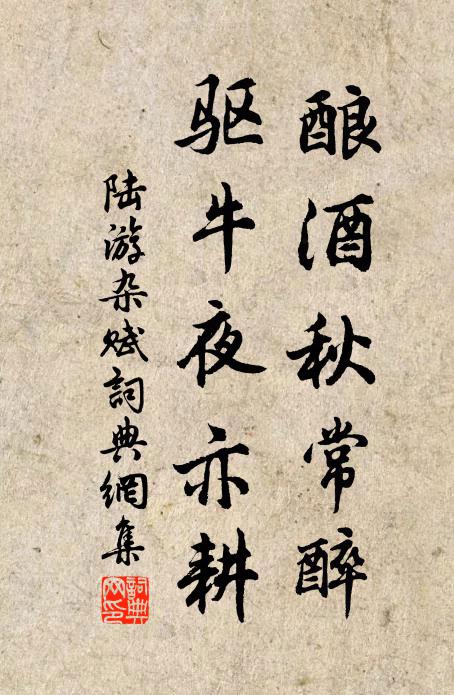 酿酒秋常醉
驱牛夜亦耕
陆游杂赋詞典網集
詞典网印